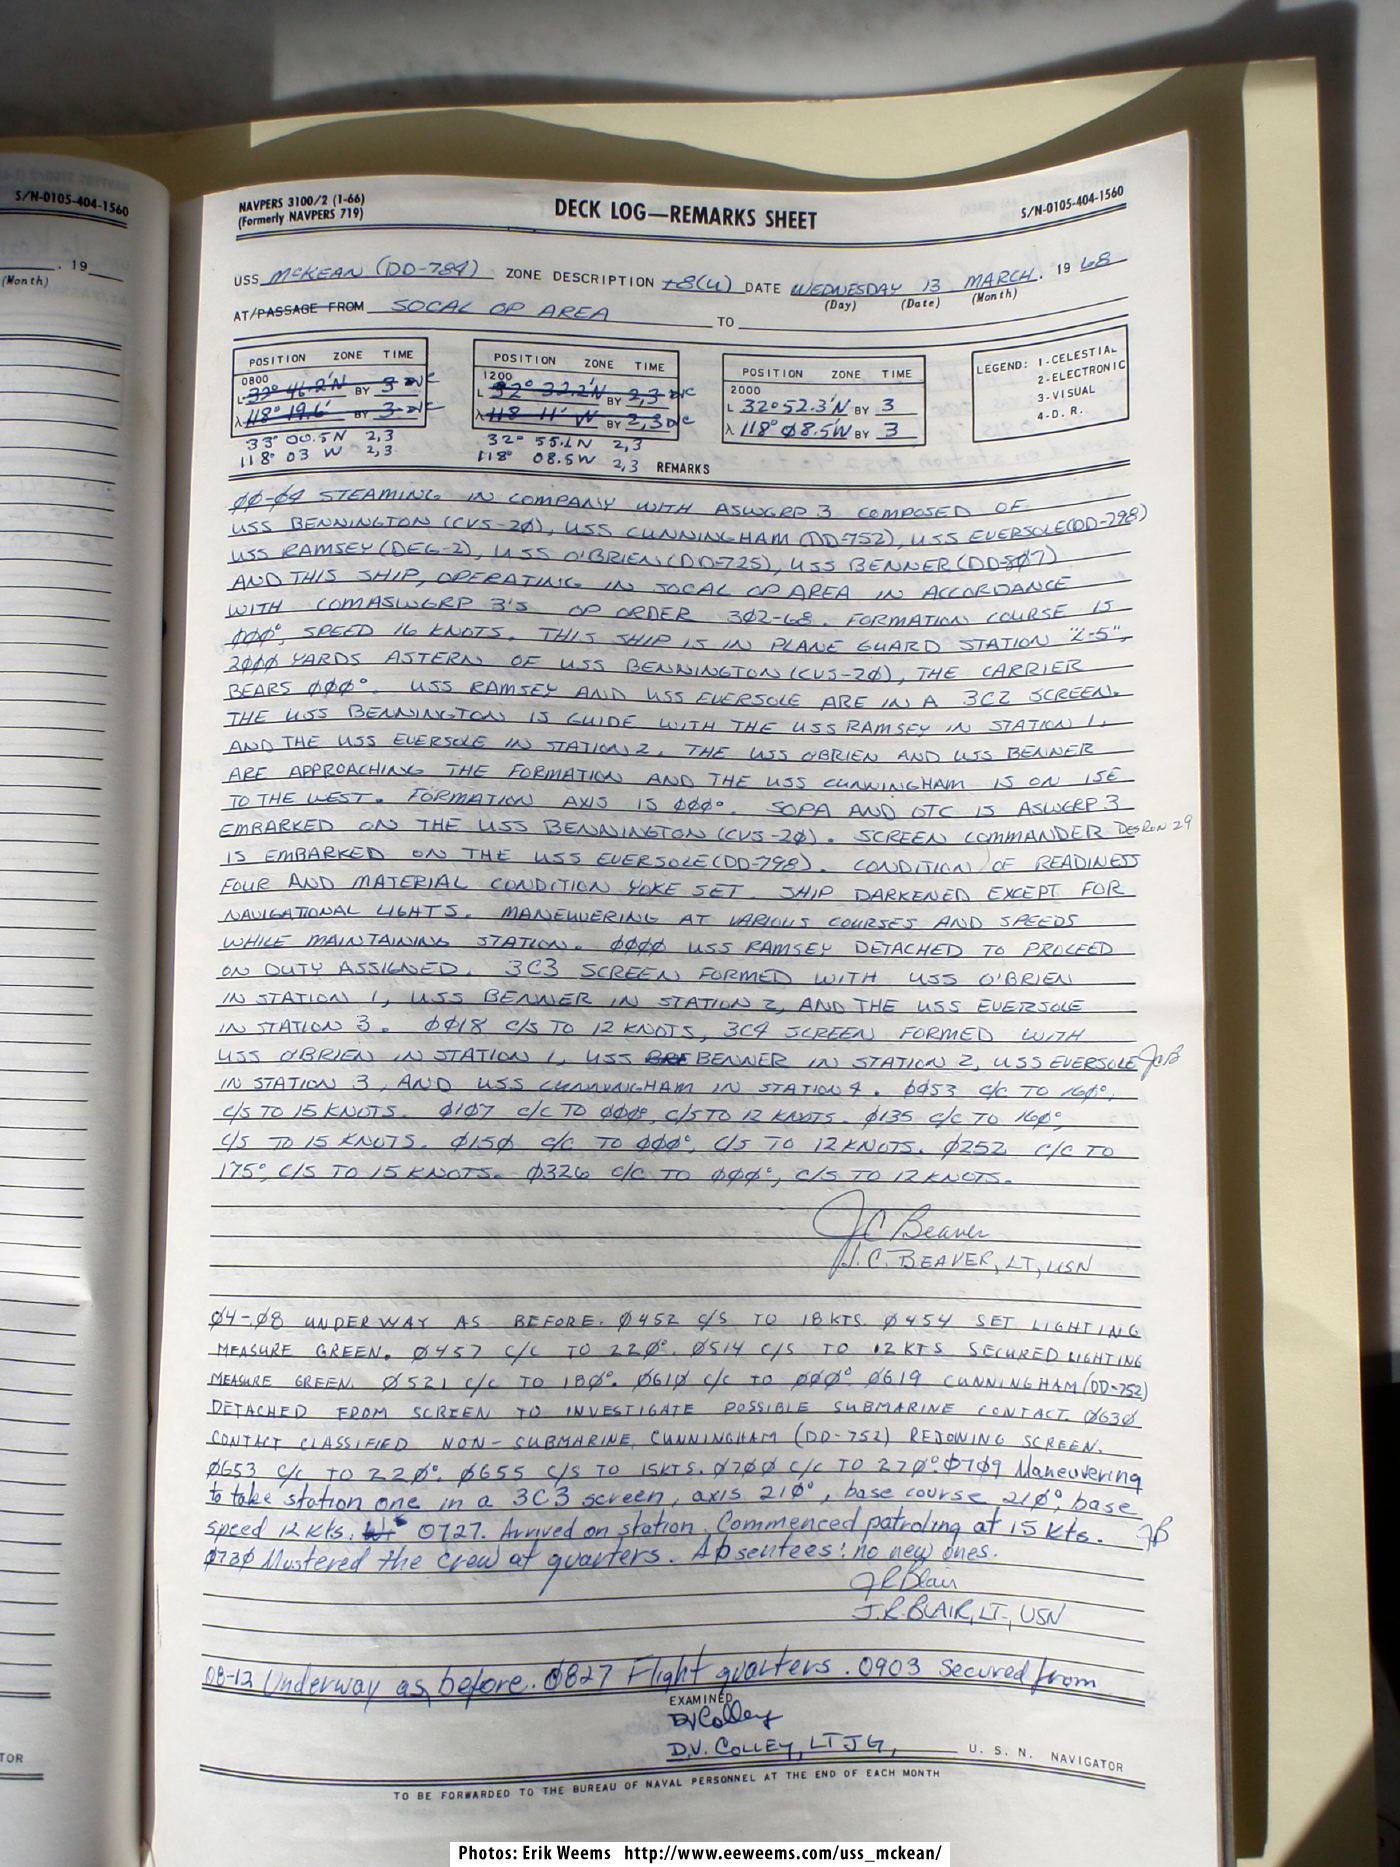 S/N-0105-404-1560
. 19
(Month)
NAVPERS 3100/2 (1-66)
(Formerly NAVPERS 719)
DECK LOG—REMARKS SHEET
S/N-0105-404-1560
USS McKEAN (DD-784) ZONE DESCRIPTION +8(U) DATE WEDNESDAY 13 MARCH. 19 68
(Day) (Date) (Month)
AT/PASSAGE FROM SOCAL OP AREA TO
POSITION ZONE TIME
0800
L 32° 46.2'N BY 3
λ 118° 19.6' BY 3
33° 00.5N 2,3
118° 03 W 2,3
POSITION ZONE TIME
1200
L 32° 32.2'N BY 2,3
λ 118 11' W BY 2,3
32° 55.1N 2,3
118° 08.5W 2,3
POSITION ZONE TIME
2000
L 32°52.3'N BY 3
λ 118°Ø8.5'W BY 3
LEGEND: 1-CELESTIAL
2-ELECTRONIC
3-VISUAL
4-D. R.
REMARKS
ØØ-Ø4 STEAMING IN COMPANY WITH ASWGRP 3 COMPOSED OF
USS BENNINGTON (CVS-2Ø), USS CUNNINGHAM (DD-752), USS EVERSOLE(DD-798)
USS RAMSEY(DEG-2), USS O'BRIEN(DD-725), USS BENNER(DD-8Ø7)
AND THIS SHIP, OPERATING IN SOCAL OP AREA IN ACCORDANCE
WITH COMASWGRP 3'S OP ORDER 3Ø2-68. FORMATION COURSE IS
ØØØ°, SPEED 16 KNOTS. THIS SHIP IS IN PLANE GUARD STATION "L-5",
2ØØØ YARDS ASTERN OF USS BENNINGTON(CVS-2Ø), THE CARRIER
BEARS ØØØ°. USS RAMSEY AND USS EVERSOLE ARE IN A 3C2 SCREEN.
THE USS BENNINGTON IS GUIDE WITH THE USS RAMSEY IN STATION 1,
AND THE USS EVERSOLE IN STATION 2. THE USS O'BRIEN AND USS BENNER
ARE APPROACHING THE FORMATION AND THE USS CUNNINGHAM IS ON ISE
TO THE WEST. FORMATION AXIS IS ØØØ°. SOPA AND OTC IS ASWGRP 3
EMBARKED ON THE USS BENNINGTON(CVS-2Ø). SCREEN COMMANDER DESRON 29
IS EMBARKED ON THE USS EVERSOLE(DD-798). CONDITION OF READINESS
FOUR AND MATERIAL CONDITION YOKE SET. SHIP DARKENED EXCEPT FOR
NAVIGATIONAL LIGHTS. MANEUVERING AT VARIOUS COURSES AND SPEEDS
WHILE MAINTAINING STATION. ØØØØ USS RAMSEY DETACHED TO PROCEED
ON DUTY ASSIGNED. 3C3 SCREEN FORMED WITH USS O'BRIEN
IN STATION 1, USS BENNER IN STATION 2, AND THE USS EVERSOLE
IN STATION 3. ØØ18 C/S TO 12 KNOTS, 3C4 SCREEN FORMED WITH
USS O'BRIEN IN STATION 1, USS BENNER IN STATION 2, USS EVERSOLE JCB
IN STATION 3, AND USS CUNNINGHAM IN STATION 4. ØØ53 C/C TO 16Ø°,
C/S TO 15 KNOTS. Ø1Ø7 C/C TO ØØØ°, C/S TO 12 KNOTS. Ø135 C/C TO 16Ø°,
C/S TO 15 KNOTS. Ø15Ø C/C TO ØØØ°, C/S TO 12 KNOTS. Ø252 C/C TO
175°, C/S TO 15 KNOTS. Ø326 C/C TO ØØØ°, C/S TO 12 KNOTS.
JC Beaver
J. C. BEAVER, LT, USN
Ø4-Ø8 UNDERWAY AS BEFORE. Ø452 C/S TO 18 KTS. Ø454 SET LIGHTING
MEASURE GREEN. Ø457 C/C TO 22Ø°. Ø514 C/S TO 12 KTS SECURED LIGHTING
MEASURE GREEN. Ø521 C/C TO 18Ø°. Ø61Ø C/C TO ØØØ° Ø619 CUNNINGHAM (DD-752)
DETACHED FROM SCREEN TO INVESTIGATE POSSIBLE SUBMARINE CONTACT. Ø63Ø
CONTACT CLASSIFIED NON-SUBMARINE, CUNNINGHAM (DD-752) REJOINING SCREEN.
Ø653 C/C TO 22Ø°. Ø655 C/S TO 15KTS. Ø7ØØ C/C TO 27Ø°. Ø7Ø9 Maneuvering
to take station one in a 3C3 screen, axis 21Ø°, base course 21Ø°, base
speed 12 kts. 0727. Arrived on station. Commenced patroling at 15 kts. JB
Ø73Ø Mustered the crew at quarters. Absentees: no new ones.
JR Blair
J. R. BLAIR, LT., USN
08-12 Underway as before. Ø827 Flight quarters. 0903 Secured from
EXAMINED
DVColley
D.V. COLLEY, LTJG, U. S. N. NAVIGATOR
TO BE FORWARDED TO THE BUREAU OF NAVAL PERSONNEL AT THE END OF EACH MONTH
TOR
Photos: Erik Weems http://www.eeweems.com/uss_mckean/